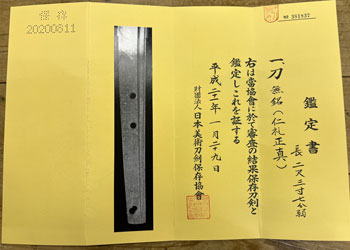 保存
20200811
鑑定書
一、刀 無銘(仁礼正真)
長二尺三寸七分
右は當協會に於て審査の結果保存刀剣と
鑑定しこれを証する
平成二十一年一月二十九日
財團法人日本美術刀劍保存協會